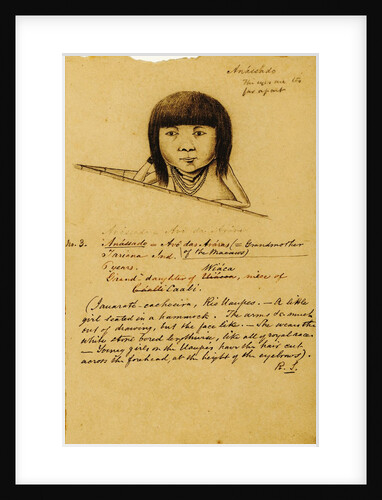 Anássado
The eyes are too
far apart
No. 3. Anássado = Avó das Aráras (= Grandmother
of the Macaws)
Tariana Ind.
7 years.
Grand-daughter of Uiáca, niece of
Wiáca
Caáli Caali.
(Jauarité-cachoeira, Rio Uaupés. – A little
girl seated in a hammock. The arms are much
out of drawing, but the face like. – She wears the
white stone bored lengthwise, like all of royal race.
– Young girls on the Uaupés have the hair cut
across the forehead, at the height of the eyebrows).
R. S.